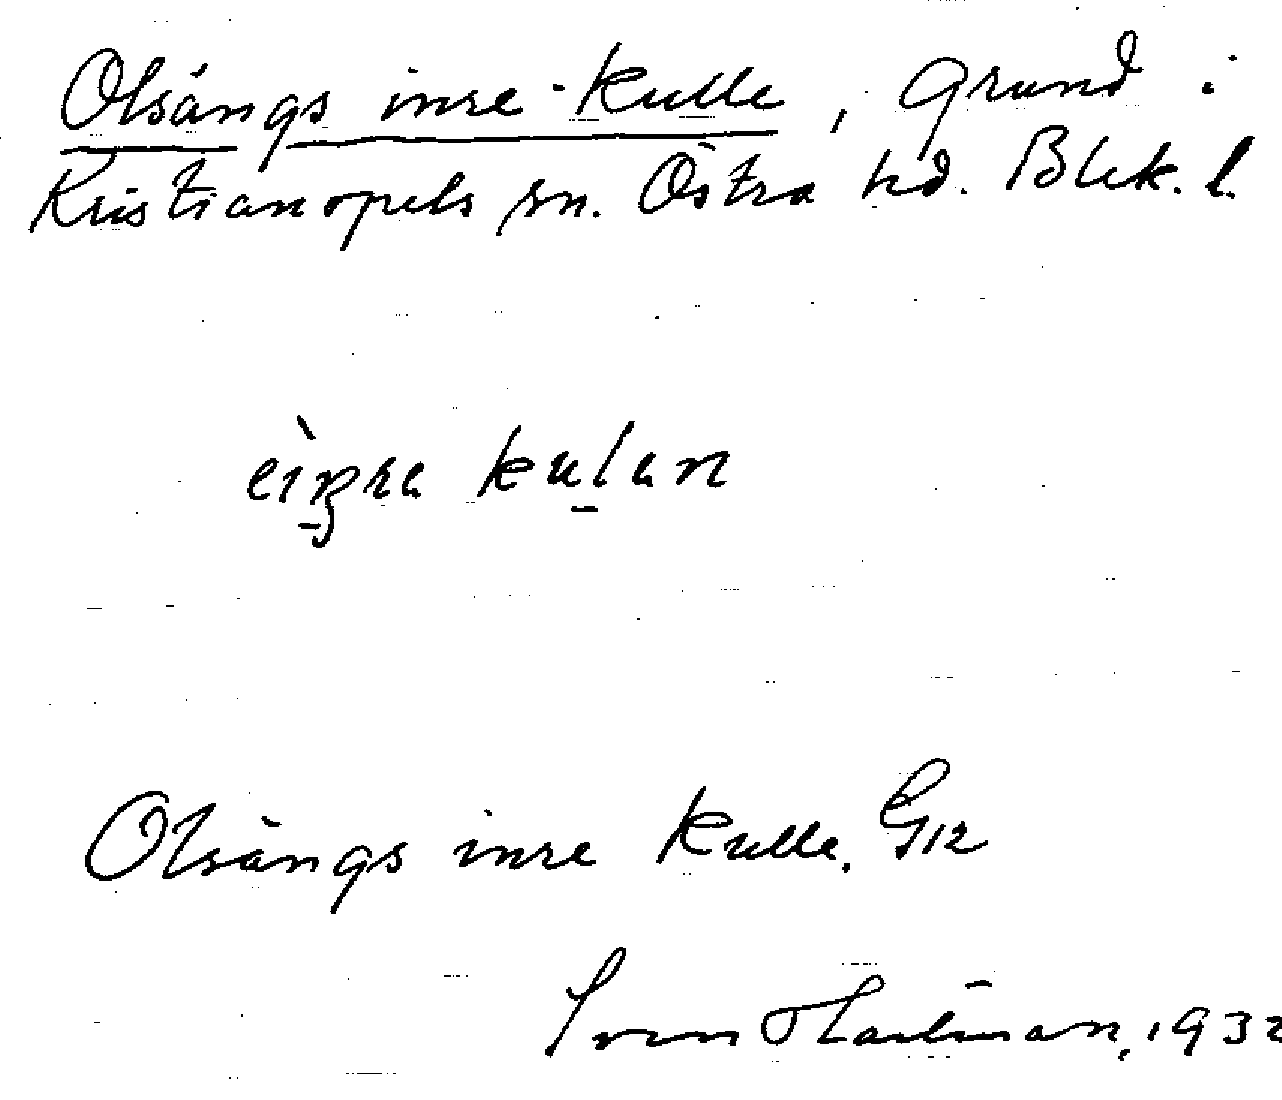 Olsängs inre kulle, Grund i
Kristianopels sn. Östra hd. Blek. l.
kulan
Olsängs inre kulle. GK
Sven Hartman, 1932